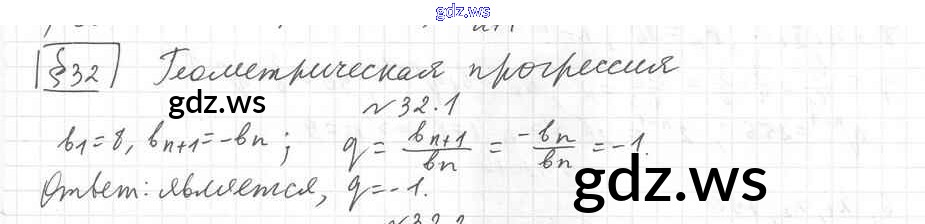 gdz.ws
§32 Геометрическая прогрессия
gdz.ws
№32.1
b₁=8, bₙ₊₁=-bₙ; q = bₙ₊₁/bₙ = -bₙ/bₙ = -1.
Ответ: является, q=-1.
gdz.ws